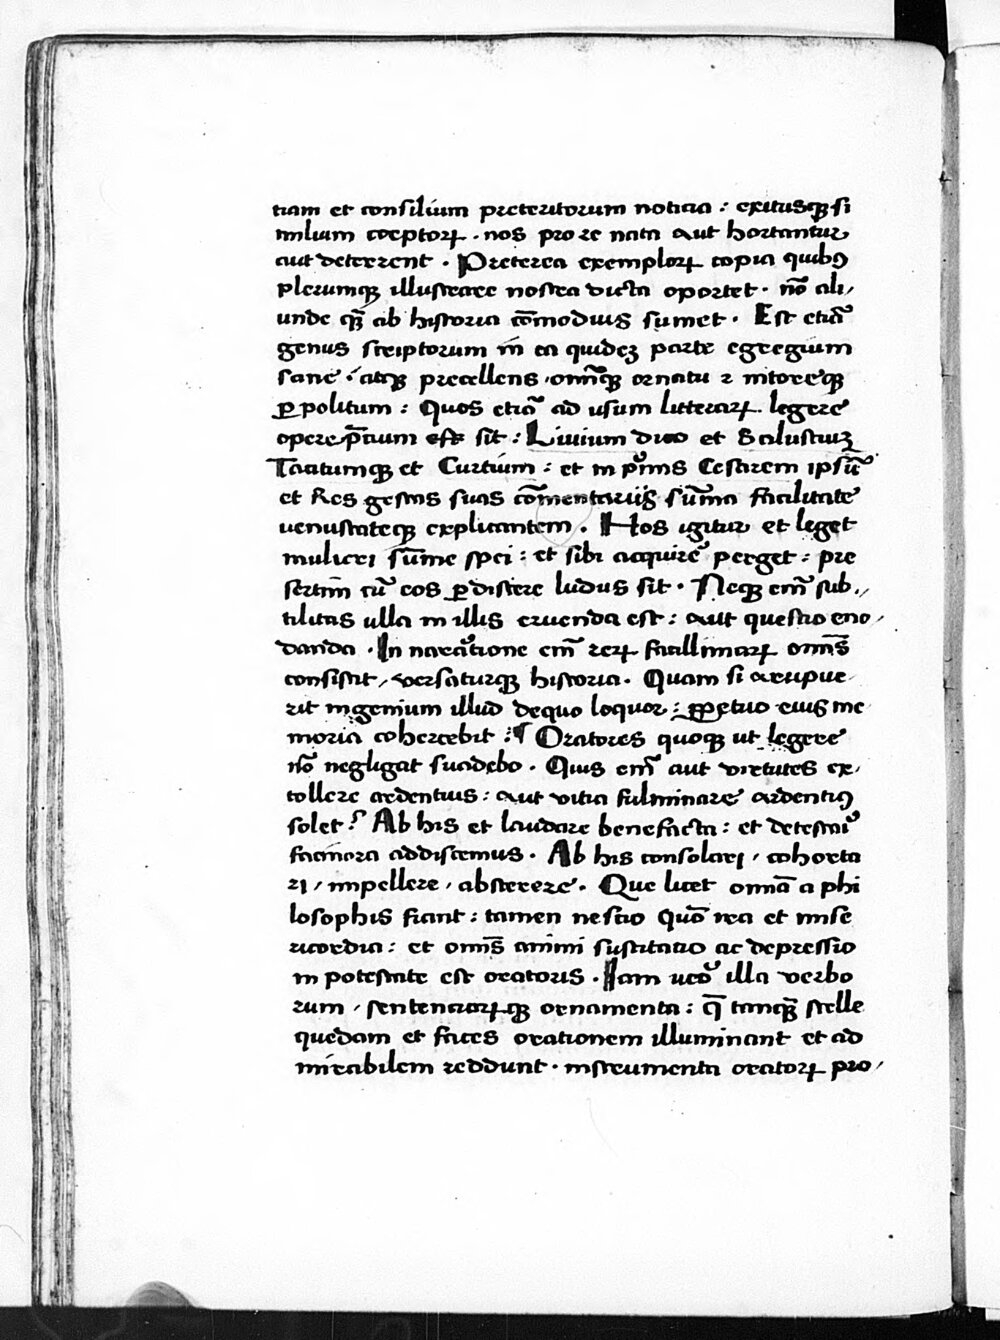 tiam et consilium preteritorum noticia : exitusqꝫ si
milium coeptorꝝ . nos pro re nata aut hortantur
aut deterrent . Preterea exemplorꝝ copia quibꝰ
plerumqꝫ illustrare nostra dicta oportet . nō ali/
unde qꝫ̄ ab historia cōmodius sumet . Est etiā
genus scriptorum in ea quideꝫ parte egregium
sane / atqꝫ precellens / omīqꝫ ornatu ⁊ nitoreqꝫ
ꝑpolitum : Quos etiā ad usum litterarꝝ legere
operep̄cium esse sit : Liuium dico et Salustiuꝫ
Tacitumqꝫ et Curtium : et in pͥmis Cesarem ipsū
et Res gestas suas cōmentariis sūma facilitate
venustateqꝫ explicantem . Hos igitur et leget
mulieri sūme spei : et sibi acquire᷑ perget : pre
sertim cū eos ꝑdiscere ludus sit . Neqꝫ em̄ sub/
tilitas ulla in illis eruenda est : aut questio eno/
danda . In narͣtione em̄ rerꝝ facillimarꝝ omīs
consistit / versaturqꝫ historia . Quam si arripue/
rit ingenium illud dequo loquor : ꝑpetuo eius me
moria cohercebit : ¶ Oratores quoqꝫ ut legere
nō negligat suadebo . Quis em̄ aut virtutes ex/
tollere ardentius : aut vitia fulminare ardentiꝰ
solet ? Ab his et laudare benefacta : et detestari
facinora addiscemus . Ab his consolari / cohorta
ri / impellere / absterere . Que licet omīa a phi
losophis fiant : tamen nescio quō ira et mise
ricordia : et omīs animi suscitatio ac depressio
in potestate est oratoris . Iam vero illa verbo
rum / sentenciarꝝqꝫ ornamenta : q̄ tanqꝫ̄ stelle
quedam et faces orationem illuminant et ad
mirabilem reddunt . instrumenta oratorꝝ pro/